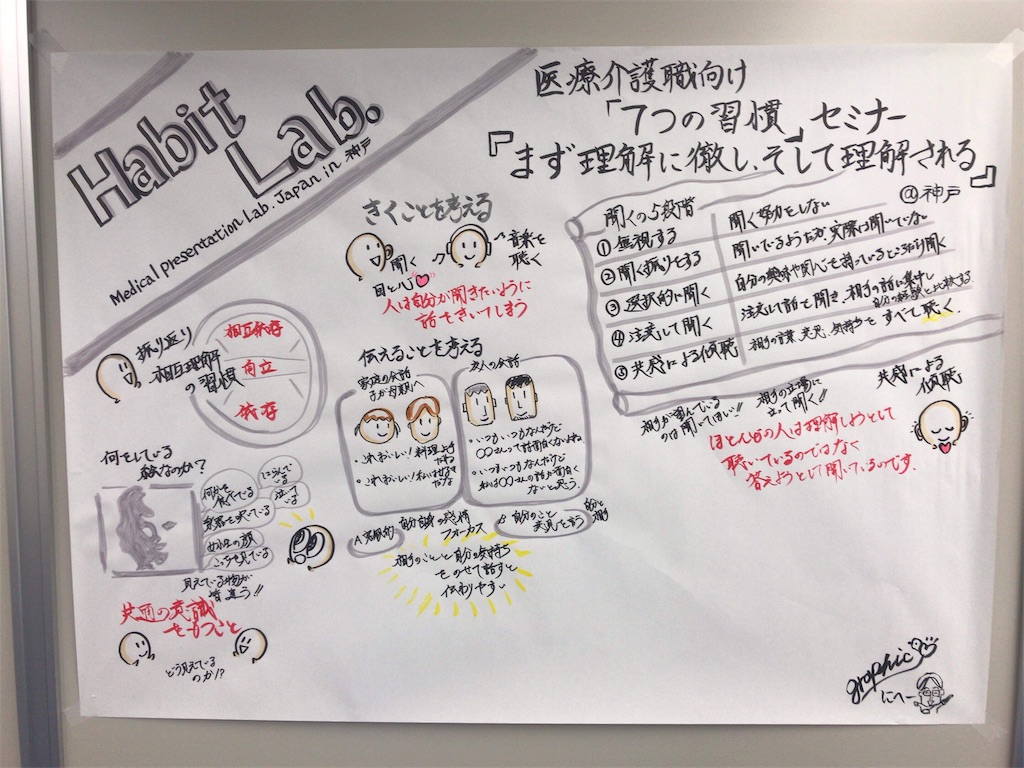 Habit Lab.
Medical presentation Lab. Japan in 神戸
医療介護職向け
「7つの習慣」セミナー
『まず理解に徹し、そして理解される』
@神戸
振り返り
相互理解
の習慣
相互依存
自立
依存
何をしている
絵なのか?
何かを
食べている
楽器を吹いている
女性の顔
こっちを見ている
泣いて
いる
見えている物が
皆違う!!
共通の意識
をもつこと
どう見えている
のか!?
きくことを考える
聞く
目と心
音楽を
聴く
人は自分が聞きたいように
話をきいてしまう
伝えることを考える
家庭の会話
子が母親へ
・これおいしい!料理上手
だね
・これおいしい!私は好き
だな
友人の会話
・いつもいつもなんだけど
〇〇さんって話面白くないよね
・いつもいつもなんだけど
私は〇〇さんの話が面白く
ないと思う。
自分自身の感情
フォーカス
B 自分のこと
意見を言う
自分と
相手
相手のことと自分の気持ち
をのせて話すと
伝わりやすい
聞くの5段階
①無視する
聞く努力をしない
②聞く振りをする
聞いているようだが、実際は聞いていない
③選択的に聞く
自分の興味や関心を持っているところだけ聞く
④注意して聞く
注意して話を聞き、相手の話に集中し
自分の経験と比較する
⑤共感による傾聴
相手の言葉、意見、気持ちをすべて聴く
相手が望んでいる
のは聞いてほしい!!
相手の立場に
立って聞く!!
共感による
傾聴
ほとんどの人は理解しようとして
聴いているのではなく
答えようとして聞いているのです。
graphic
にへー